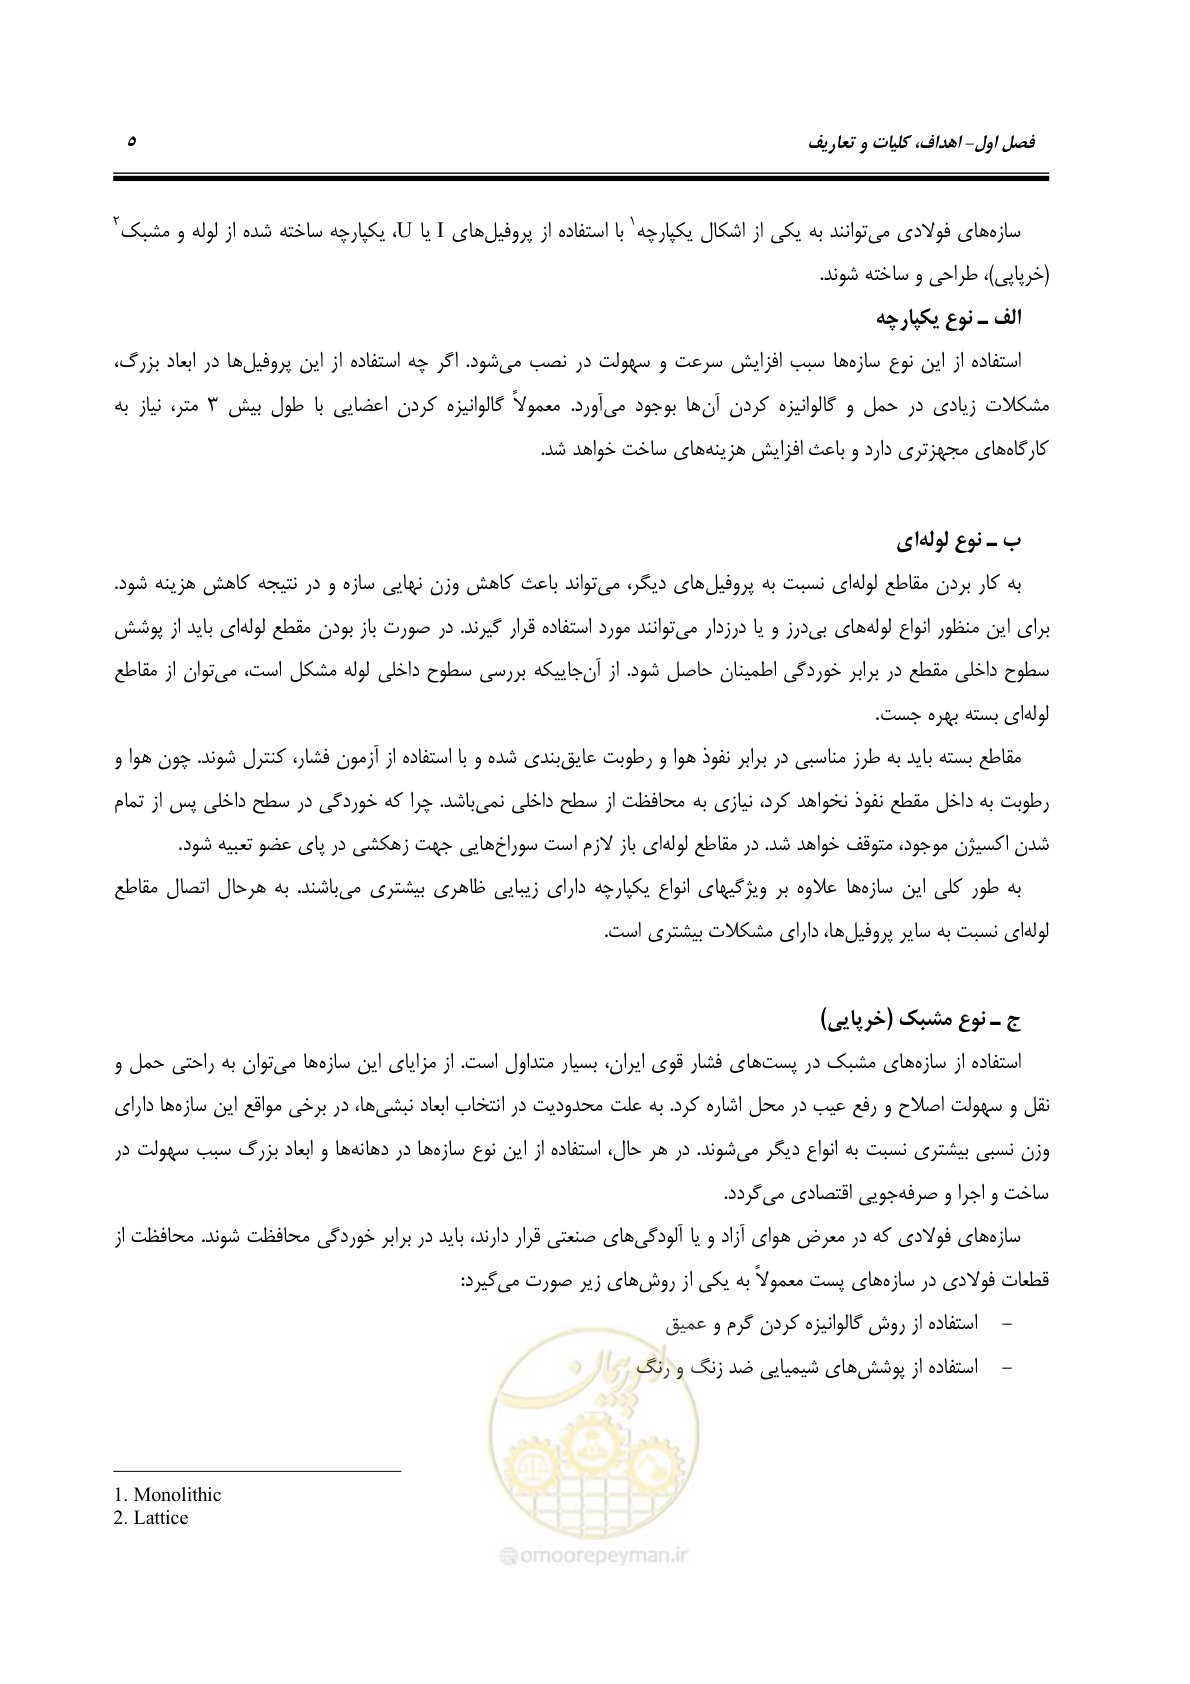 فصل اول- اهداف، کلیات و تعاریف ۵
سازه‌های فولادی می‌توانند به یکی از اشکال یکپارچه۱ با استفاده از پروفیل‌های I یا U، یکپارچه ساخته شده از لوله و مشبک۲
(خرپایی)، طراحی و ساخته شوند.
الف ـ نوع یکپارچه
استفاده از این نوع سازه‌ها سبب افزایش سرعت و سهولت در نصب می‌شود. اگر چه استفاده از این پروفیل‌ها در ابعاد بزرگ،
مشکلات زیادی در حمل و گالوانیزه کردن آن‌ها بوجود می‌آورد. معمولاً گالوانیزه کردن اعضایی با طول بیش ۳ متر، نیاز به
کارگاه‌های مجهزتری دارد و باعث افزایش هزینه‌های ساخت خواهد شد.
ب ـ نوع لوله‌ای
به کار بردن مقاطع لوله‌ای نسبت به پروفیل‌های دیگر، می‌تواند باعث کاهش وزن نهایی سازه و در نتیجه کاهش هزینه شود.
برای این منظور انواع لوله‌های بی‌درز و یا درزدار می‌توانند مورد استفاده قرار گیرند. در صورت باز بودن مقطع لوله‌ای باید از پوشش
سطوح داخلی مقطع در برابر خوردگی اطمینان حاصل شود. از آن‌جاییکه بررسی سطوح داخلی لوله مشکل است، می‌توان از مقاطع
لوله‌ای بسته بهره جست.
مقاطع بسته باید به طرز مناسبی در برابر نفوذ هوا و رطوبت عایق‌بندی شده و با استفاده از آزمون فشار، کنترل شوند. چون هوا و
رطوبت به داخل مقطع نفوذ نخواهد کرد، نیازی به محافظت از سطح داخلی نمی‌باشد. چرا که خوردگی در سطح داخلی پس از تمام
شدن اکسیژن موجود، متوقف خواهد شد. در مقاطع لوله‌ای باز لازم است سوراخ‌هایی جهت زهکشی در پای عضو تعبیه شود.
به طور کلی این سازه‌ها علاوه بر ویژگیهای انواع یکپارچه دارای زیبایی ظاهری بیشتری می‌باشند. به هرحال اتصال مقاطع
لوله‌ای نسبت به سایر پروفیل‌ها، دارای مشکلات بیشتری است.
ج ـ نوع مشبک (خرپایی)
استفاده از سازه‌های مشبک در پست‌های فشار قوی ایران، بسیار متداول است. از مزایای این سازه‌ها می‌توان به راحتی حمل و
نقل و سهولت اصلاح و رفع عیب در محل اشاره کرد. به علت محدودیت در انتخاب ابعاد نبشی‌ها، در برخی مواقع این سازه‌ها دارای
وزن نسبی بیشتری نسبت به انواع دیگر می‌شوند. در هر حال، استفاده از این نوع سازه‌ها در دهانه‌ها و ابعاد بزرگ سبب سهولت در
ساخت و اجرا و صرفه‌جویی اقتصادی می‌گردد.
سازه‌های فولادی که در معرض هوای آزاد و یا آلودگی‌های صنعتی قرار دارند، باید در برابر خوردگی محافظت شوند. محافظت از
قطعات فولادی در سازه‌های پست معمولاً به یکی از روش‌های زیر صورت می‌گیرد:
- استفاده از روش گالوانیزه کردن گرم و عمیق
- استفاده از پوشش‌های شیمیایی ضد زنگ و رنگ
امور پیمان
1. Monolithic
2. Lattice
@omoorepeyman.ir